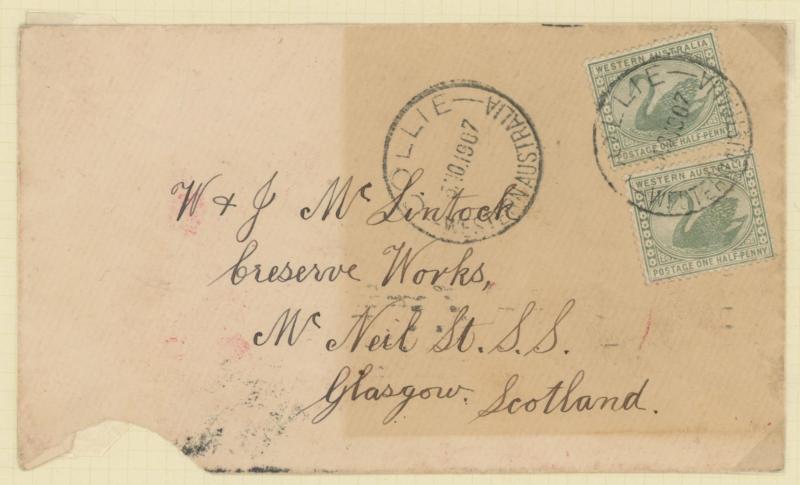 WESTERN AUSTRALIA
POSTAGE ONE HALF-PENNY
WESTERN AUSTRALIA
POSTAGE ONE HALF-PENNY
COLLIE
10.1907
WESTERN AUSTRALIA
W & J Mc Lintock
Creserve Works,
Mc Neil St. S.S.
Glasgow. Scotland.